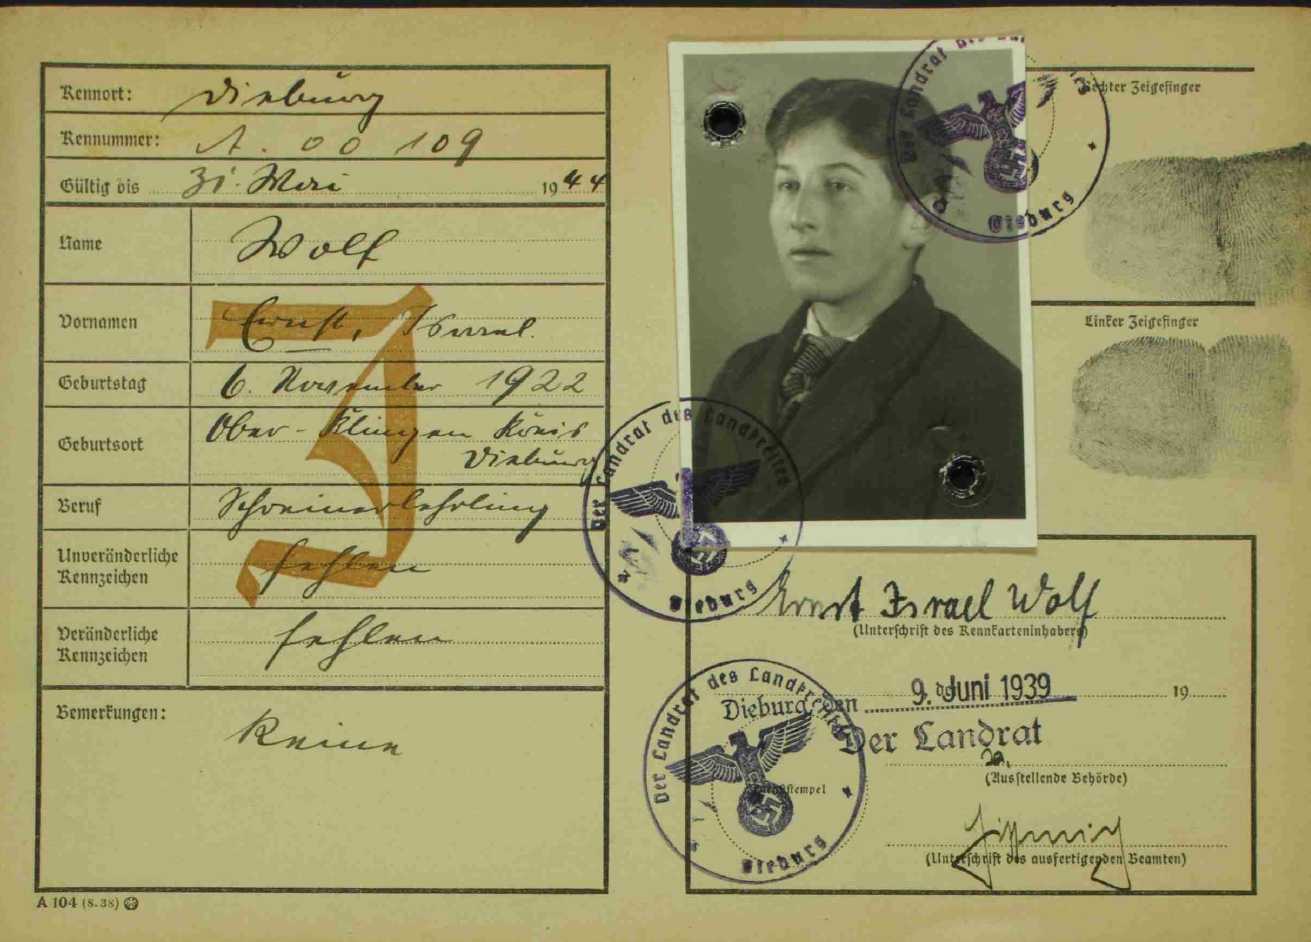 Kennort: Dieburg
Kennummer: A. 00 109
Gültig bis 31. Mai 1944
Name Wolf
Vornamen Ernst, Israel.
Geburtstag 6. November 1922
Geburtsort Ober-Klingen Kreis
Dieburg
Beruf Schreinerlehrling
Unveränderliche
Kennzeichen fehlen
Veränderliche
Kennzeichen fehlen
Bemerkungen:
Keine
A 104 (8. 38)
J
Rechter Zeigefinger
Linker Zeigefinger
Der Landrat des
Dieburg
Der Landrat des Landkreises
Dieburg
Ernst Israel Wolf
(Unterschrift des Kennkarteninhabers)
Dieburg, den 9. Juni 1939 19
Der Landrat
(Ausstellende Behörde)
Der Landrat des Landkreises
Dieburg
(Unterschrift des ausfertigenden Beamten)